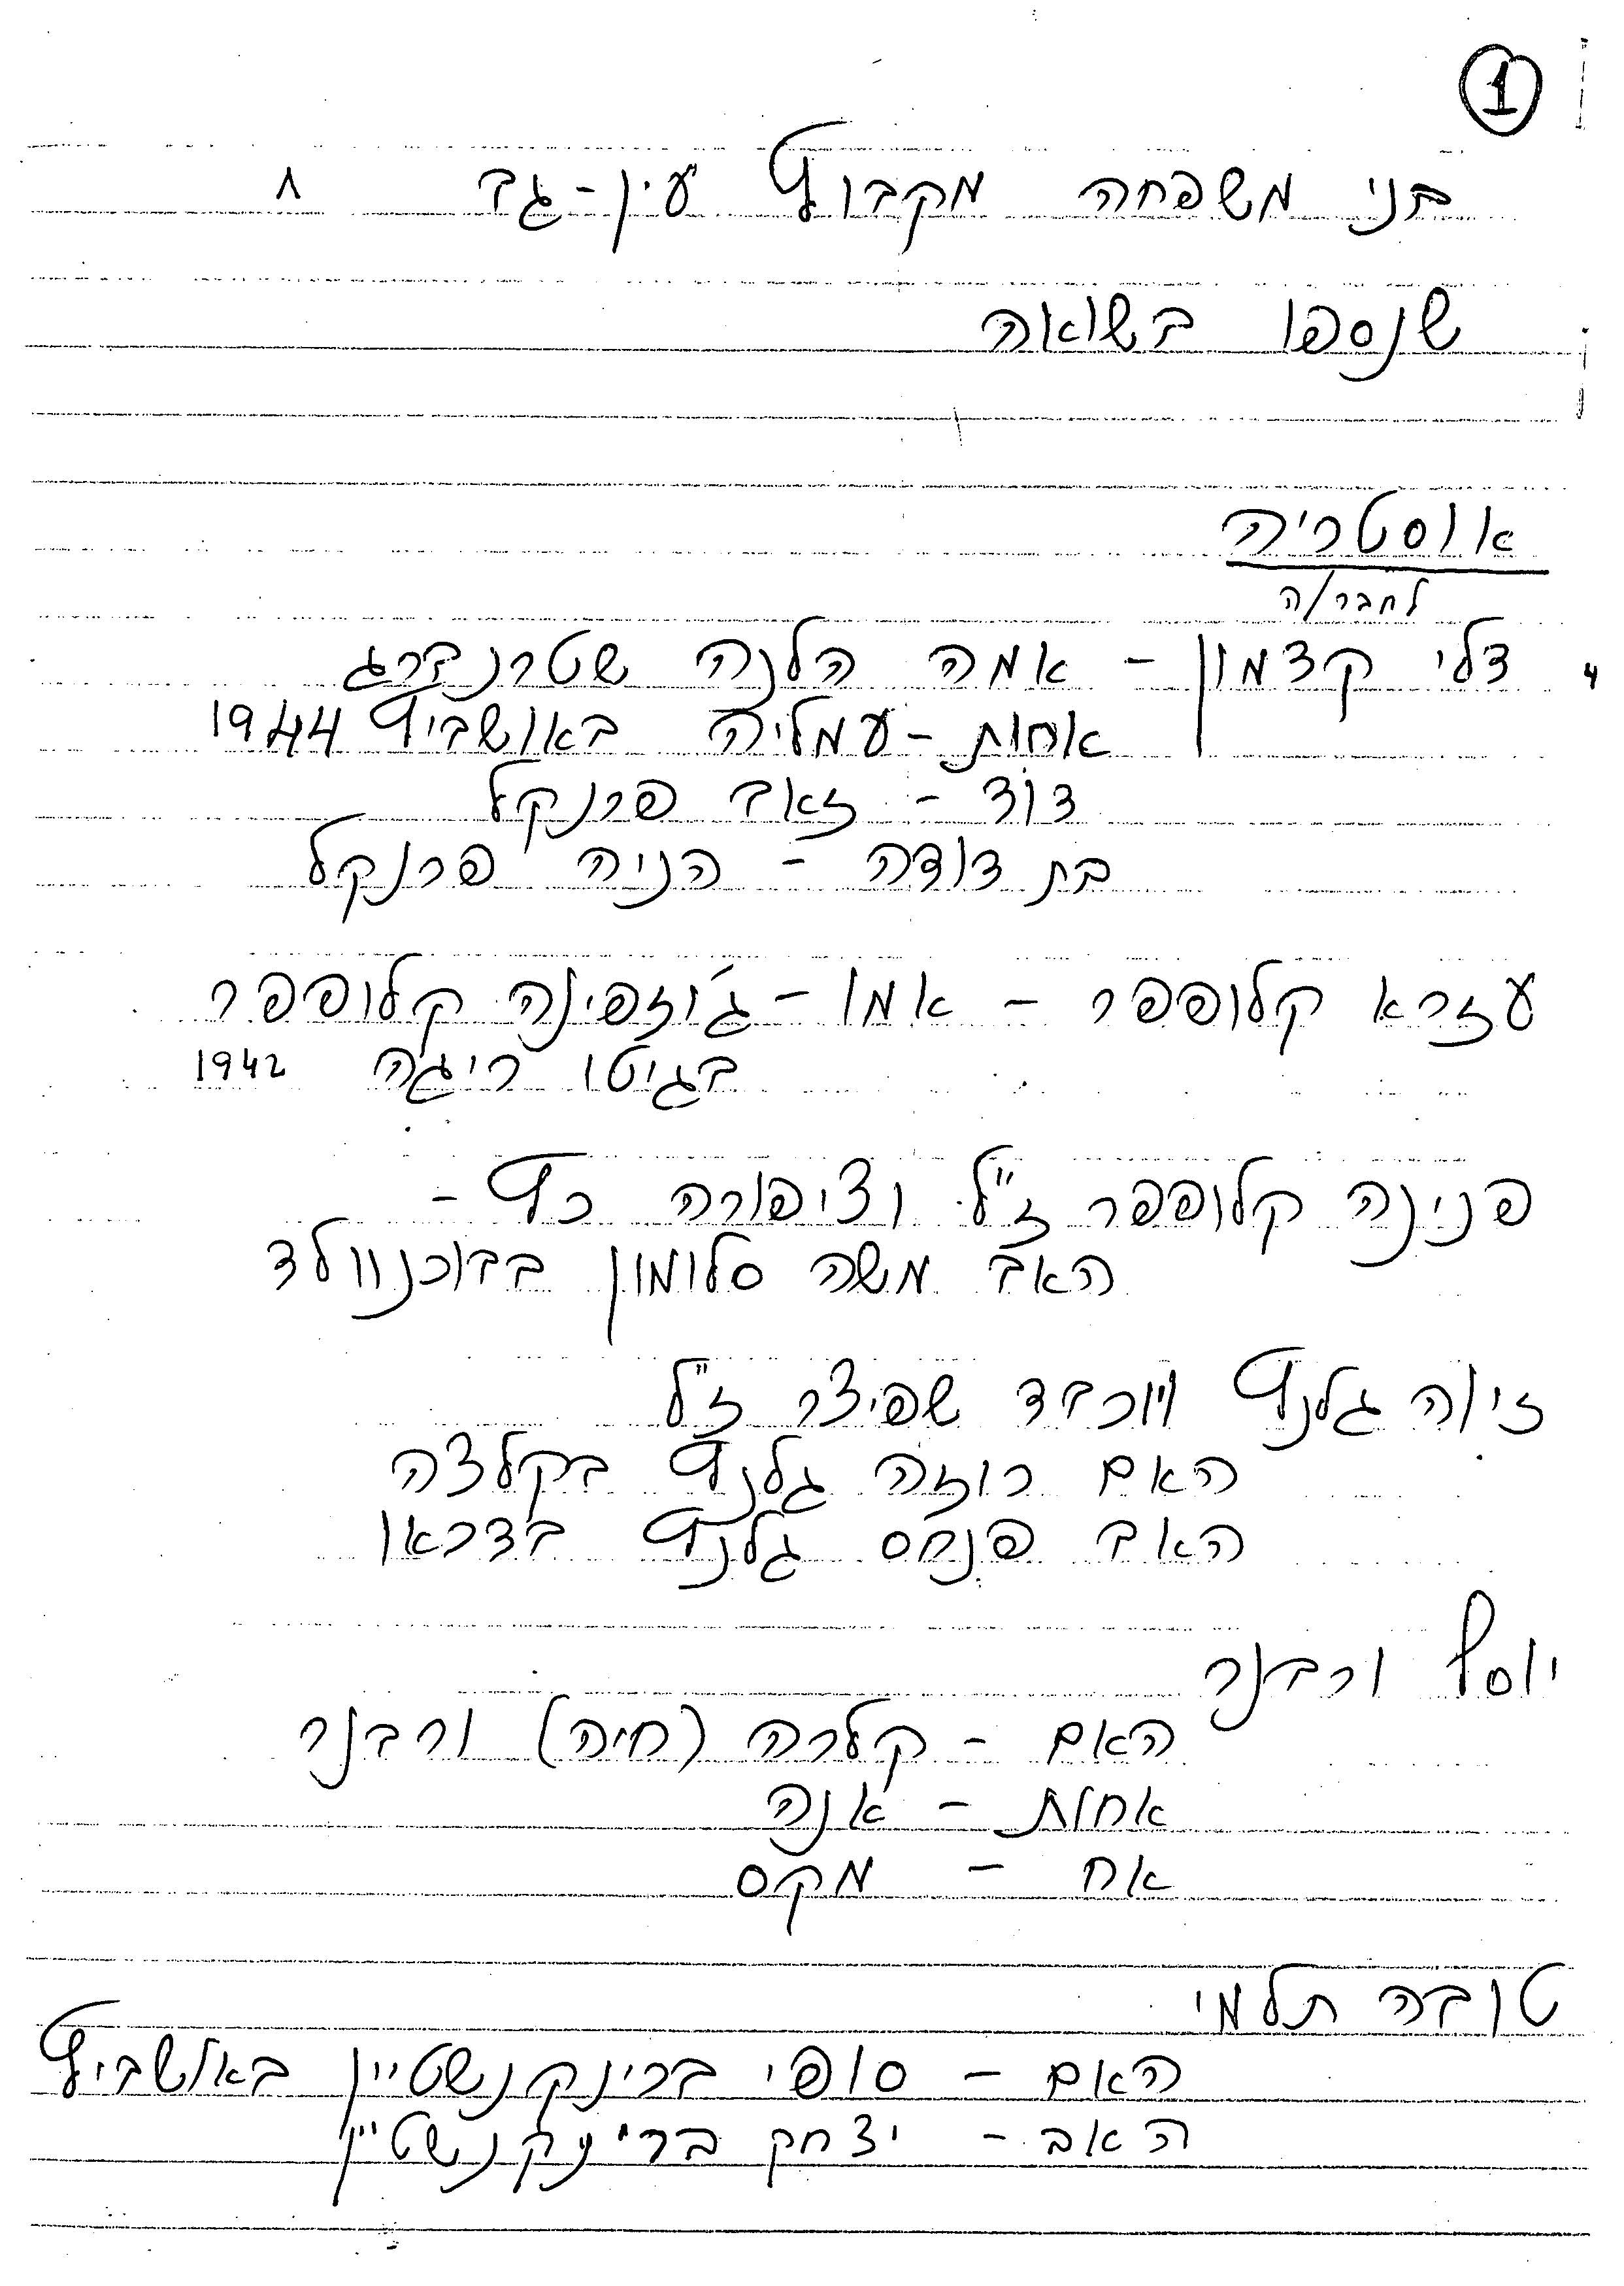 1
בני משפחה מקבוץ עין-גב
שנספו בשואה
אוסטריה
לחבר/ה
דלי קדמון - אמה הלנה שטרנברג
אחות - עמליה באושביץ 1944
דוד - זאב פרנקל
בת דודה - הניה פרנקל
עזרא קלופפר - אמו - ג'וזפינה קלופפר
בגיטו ריגה 1942
פנינה קלופפר ז"ל וציפורה כץ -
האב משה סלומון בבוכנוולד
זיוה גלנץ ויוכבד שפיצר ז"ל
האם רוזה גלנץ בקלצה
האב פנחס גלנץ בדכאו
יוסף ורבנר
האם - קלרה (חיה) ורבנר
אחות - אנה
אח - מקס
טובה תלמי
האם - סופי ברינקנשטיין באושביץ
האב - יצחק ברינקנשטיין